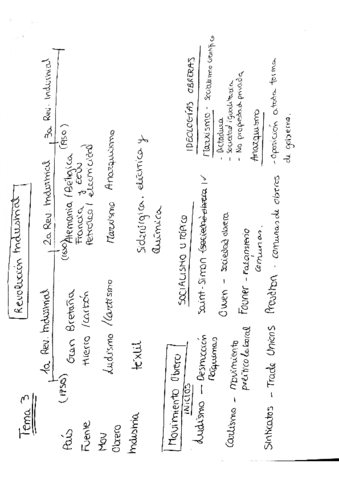 Tema 3
Revolución Industrial
1a Rev. Industrial 2a Rev Industrial 3a Rev. Industrial
(1750) (1850) (1950)
País Gran Bretaña Alemania/Bélgica
Francia y EEUU
Fuente Hierro/Carbón Petróleo/electricidad
Mov
Obrero Ludismo/Cartismo Marxismo Anarquismo
Industria textil Siderúrgica, eléctrica y
química
Movimiento Obrero
INICIOS
Ludismo - Destrucción
Máquinas
Cartismo - movimiento
político laboral
Sindicatos - Trade Unions
SOCIALISMO UTÓPICO
Saint-Simon
Owen - sociedad obrera
Fourier - Falansterio
comunas.
Proudhon - comunas de obreros
IDEOLOGÍAS OBRERAS
Marxismo - socialismo científico
- Dictadura
- Sociedad igualitaria
- No propiedad privada
Anarquismo
- oposición a toda forma
de gobierno.